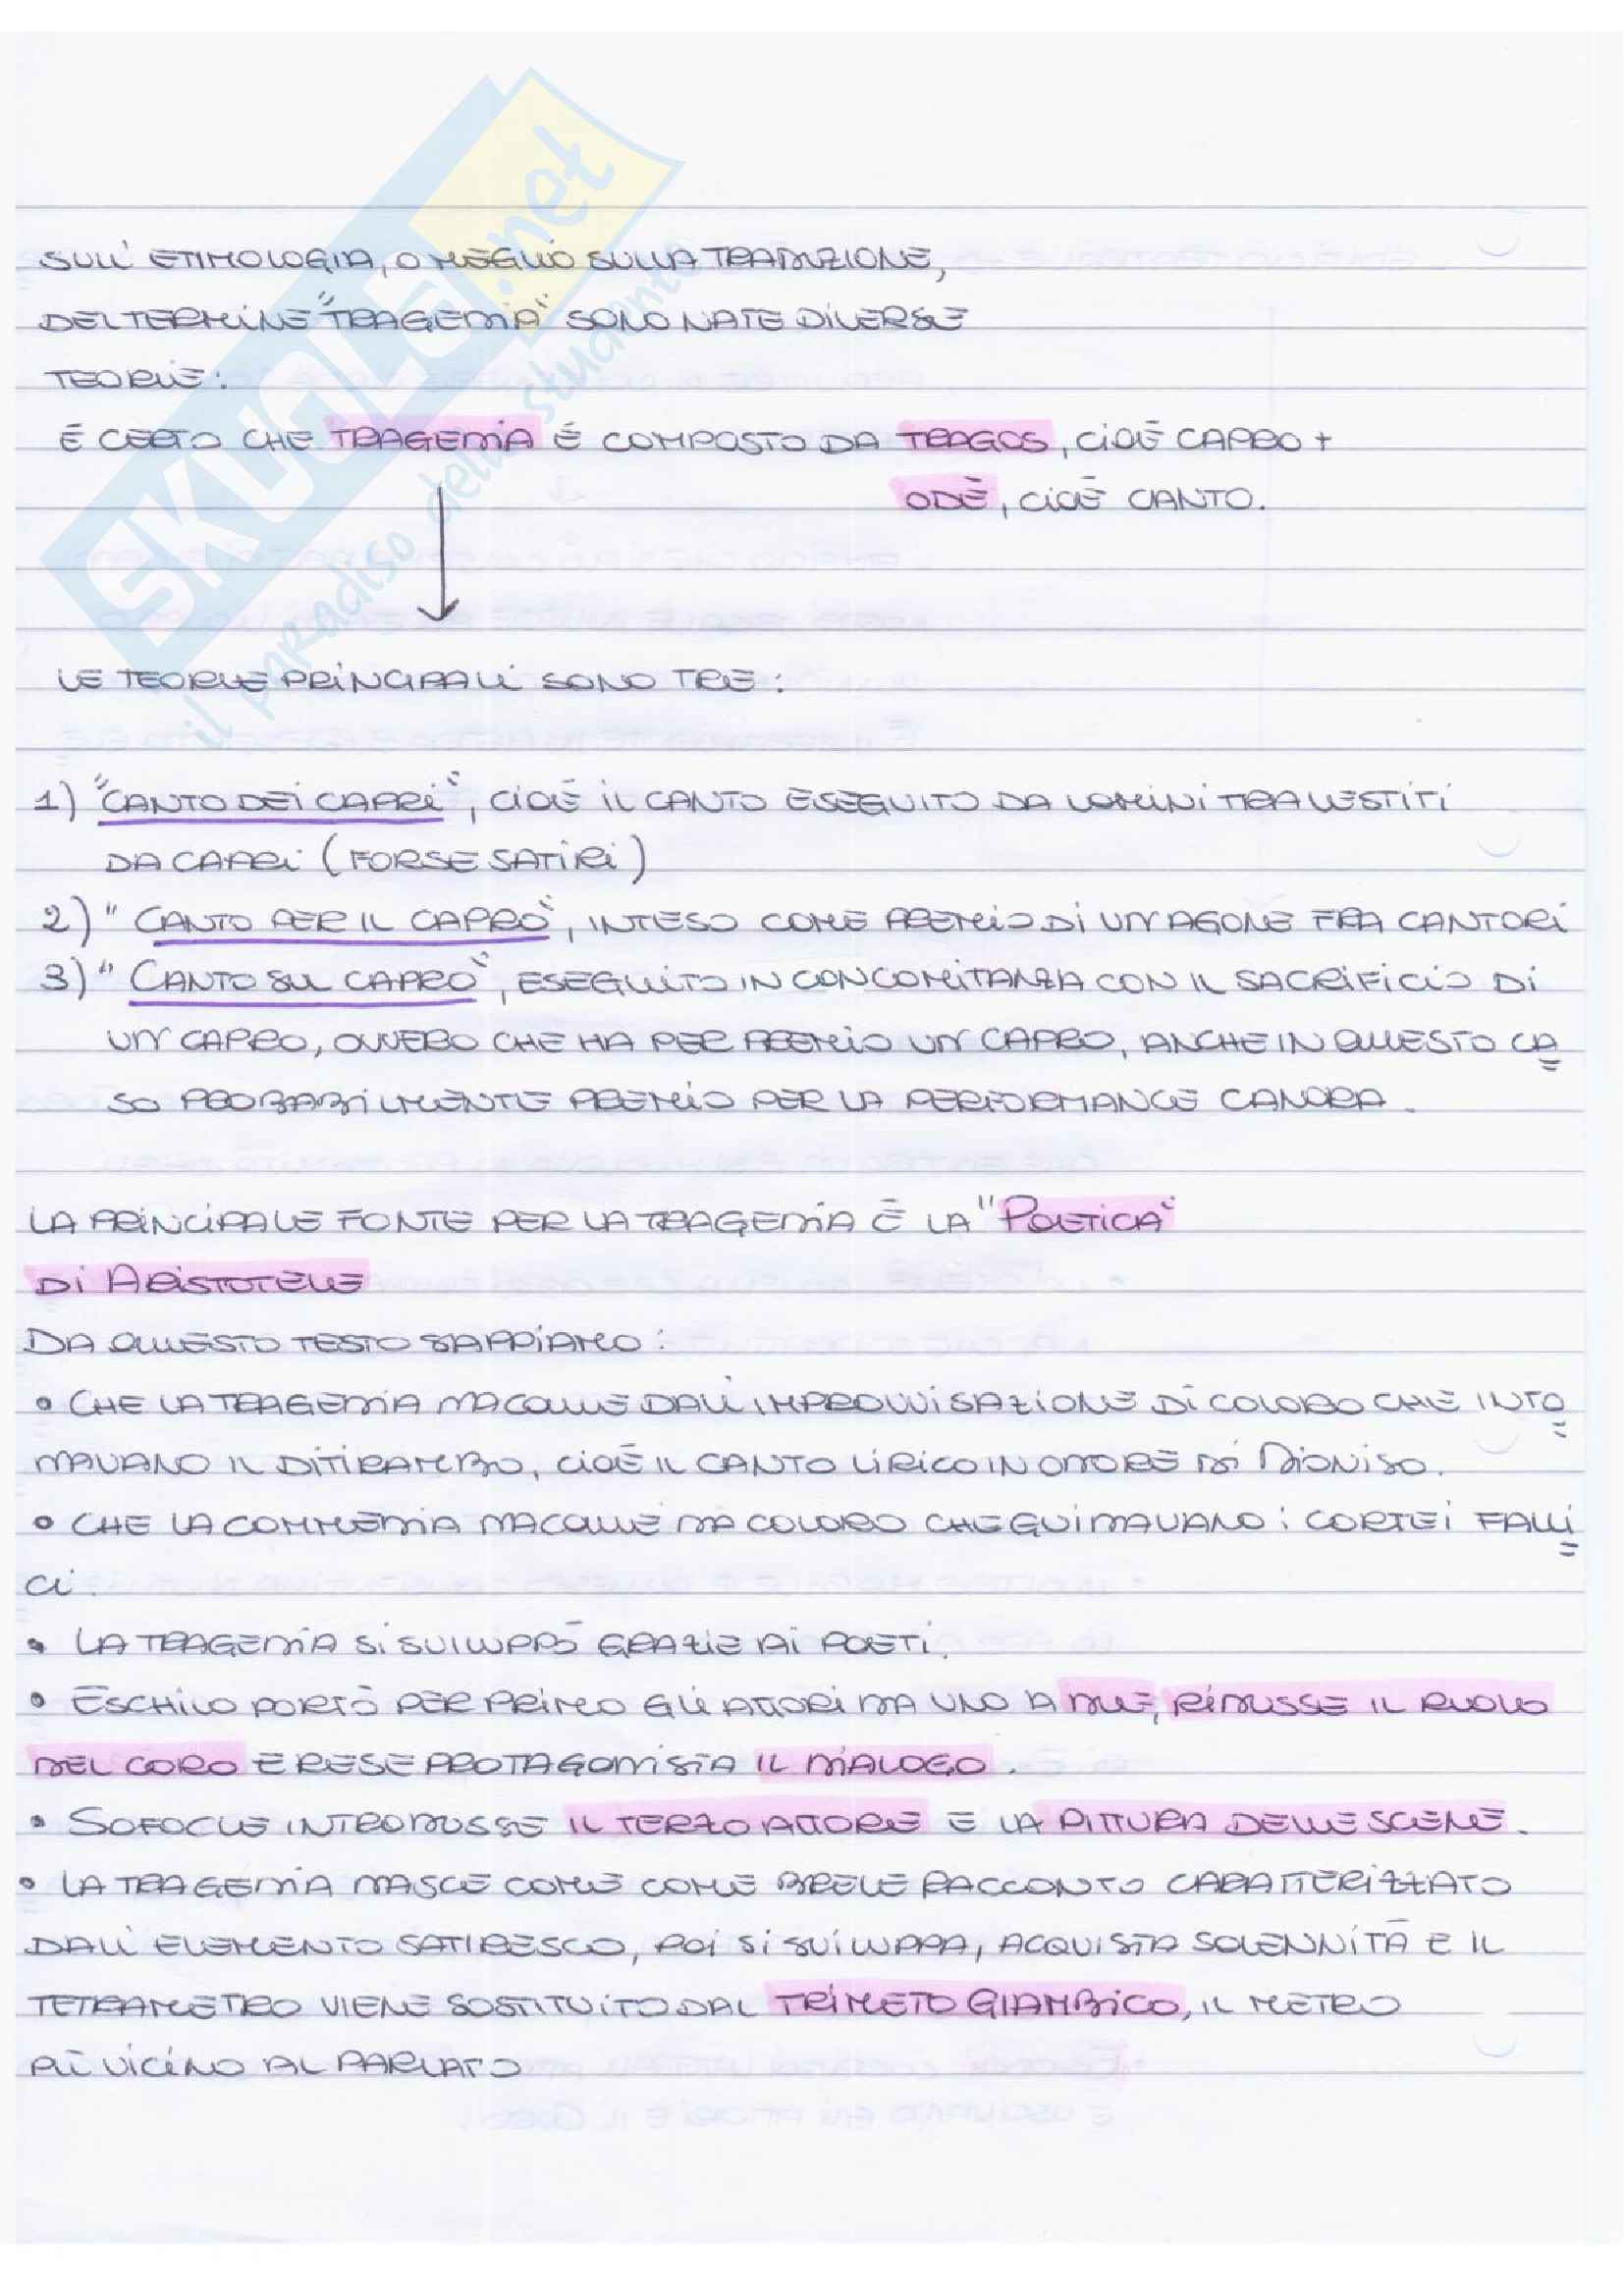 SKUOLA.net
il paradiso dello studente
SULL'ETIMOLOGIA, O MEGLIO SULLA TRADUZIONE,
DEL TERMINE "TRAGEDIA" SONO NATE DIVERSE
TEORIE:
É CERTO CHE TRAGEDIA É COMPOSTO DA TRAGOS, CIOÉ CAPRO +
ODÉ, CIOÉ CANTO.
LE TEORIE PRINCIPALI SONO TRE:
1) "CANTO DEI CAPRI", CIOÉ IL CANTO ESEGUITO DA UOMINI TRAVESTITI
DA CAPRI (FORSE SATIRI)
2) "CANTO PER IL CAPRO", INTESO COME PREMIO DI UN AGONE FRA CANTORI
3) "CANTO SUL CAPRO", ESEGUITO IN CONCOMITANZA CON IL SACRIFICIO DI
UN CAPRO, OVVERO CHE HA PER PREMIO UN CAPRO, ANCHE IN QUESTO CA=
SO PROBABILMENTE PREMIO PER LA PERFORMANCE CANORA.
LA PRINCIPALE FONTE PER LA TRAGEDIA É LA "POETICA"
DI ARISTOTELE
DA QUESTO TESTO SAPPIAMO:
• CHE LA TRAGEDIA NACQUE DALL'IMPROVVISAZIONE DI COLORO CHE INTO=
NAVANO IL DITIRAMBO, CIOÉ IL CANTO LIRICO IN ONORE DI DIONISO.
• CHE LA COMMEDIA NACQUE DA COLORO CHE GUIDAVANO I CORTEI FALLI=
CI.
• LA TRAGEDIA SI SVILUPPÓ GRAZIE AI POETI.
• ESCHILO PORTÓ PER PRIMO GLI ATTORI DA UNO A DUE, RIDUSSE IL RUOLO
DEL CORO E RESE PROTAGONISTA IL DIALOGO.
• SOFOCLE INTRODUSSE IL TERZO ATTORE E LA PITTURA DELLE SCENE.
• LA TRAGEDIA NASCE COME COME BREVE RACCONTO CARATTERIZZATO
DALL'ELEMENTO SATIRESCO, POI SI SVILUPPA, ACQUISTA SOLENNITÁ E IL
TETRAMETRO VIENE SOSTITUITO DAL TRIMETO GIAMBICO, IL METRO
PIÚ VICINO AL PARLATO